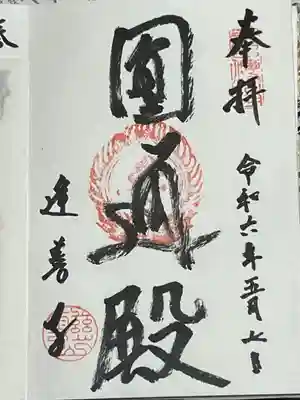 奉拝
令和六年五月七日
圓通殿
善寺